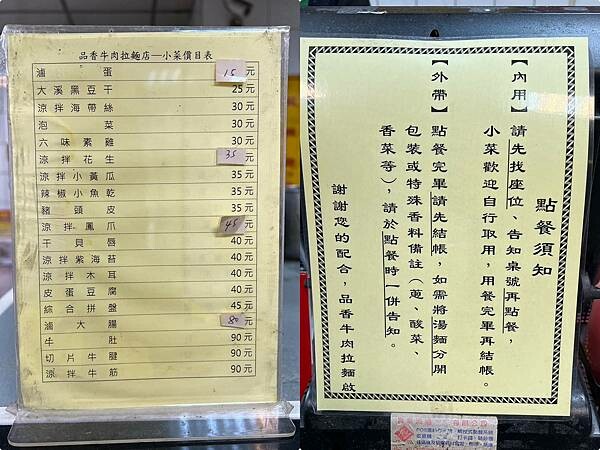 品香牛肉拉麵店—小菜價目表
滷蛋 15元
大溪黑豆干 25元
涼拌海帶絲 30元
泡菜 30元
六味素雞 30元
涼拌花生 35元
涼拌小黃瓜 35元
辣椒小魚乾 35元
豬頭皮 35元
涼拌鳳爪 45元
干貝唇 40元
涼拌紫海苔 40元
涼拌木耳 40元
皮蛋豆腐 40元
綜合拼盤 45元
滷大腸 80元
牛肚 90元
切片牛腱 90元
涼拌牛筋 90元
點餐須知
【內用】請先找座位、告知桌號再點餐，
小菜歡迎自行取用，用餐完畢再結帳。
【外帶】點餐完畢請先結帳，如需將湯麵分開
包裝或特殊香料備註（蔥、酸菜、
香菜等），請於點餐時一併告知。
謝謝您的配合，品香牛肉拉麵啟